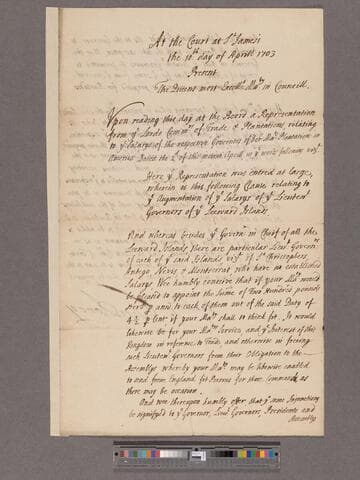 At the Court at St. James's
the 10th day of April 1703
Present
The Queens most Excellt. Maty. in Councill.
Upon reading this day at the Board a Representation
from ye Lords Commrs. of Trade & Plantations relating
to ye Salarys of the respective Governors of Her Mats. Plantations in
America Dated the 2d of this instant Aprill in ye words following vizt.
Here ye Representation was entred at large,
wherein is this following Clause relating to
ye Augmentation of ye Salarys of ye Lieutent.
Governors of ye Leeward Islands.
And whereas besides ye Governr. in Cheif of all the
Leeward Islands, there are particular Lieut. Governrs.
of each of ye said Islands vizt. of St. Christophers
Antego, Nevis & Montserrat, who have no established
Salarys. Wee humbly conceive that if your Maty. would
be pleased to appoint the Sume of Two Hundred pounds
Sterl. p ann. to each of them out of the said Duty of
4½ p Cent. if your Maty. shall so think fit. It would
likewise be for your Mats. Service, and ye Interest of this
Kingdom in reference to Trade, and otherwise in freeing
such Lieutent. Governors from their Obligation to the
Assemblys whereby your Maty. may be likewise enabled
to send from England fit Persons for those Commands as
there may be occasion.
And wee thereupon humbly offer that ye same Injunctions
be signifyed to ye Governor, Lieut. Governors, Presidents and
Assemblys